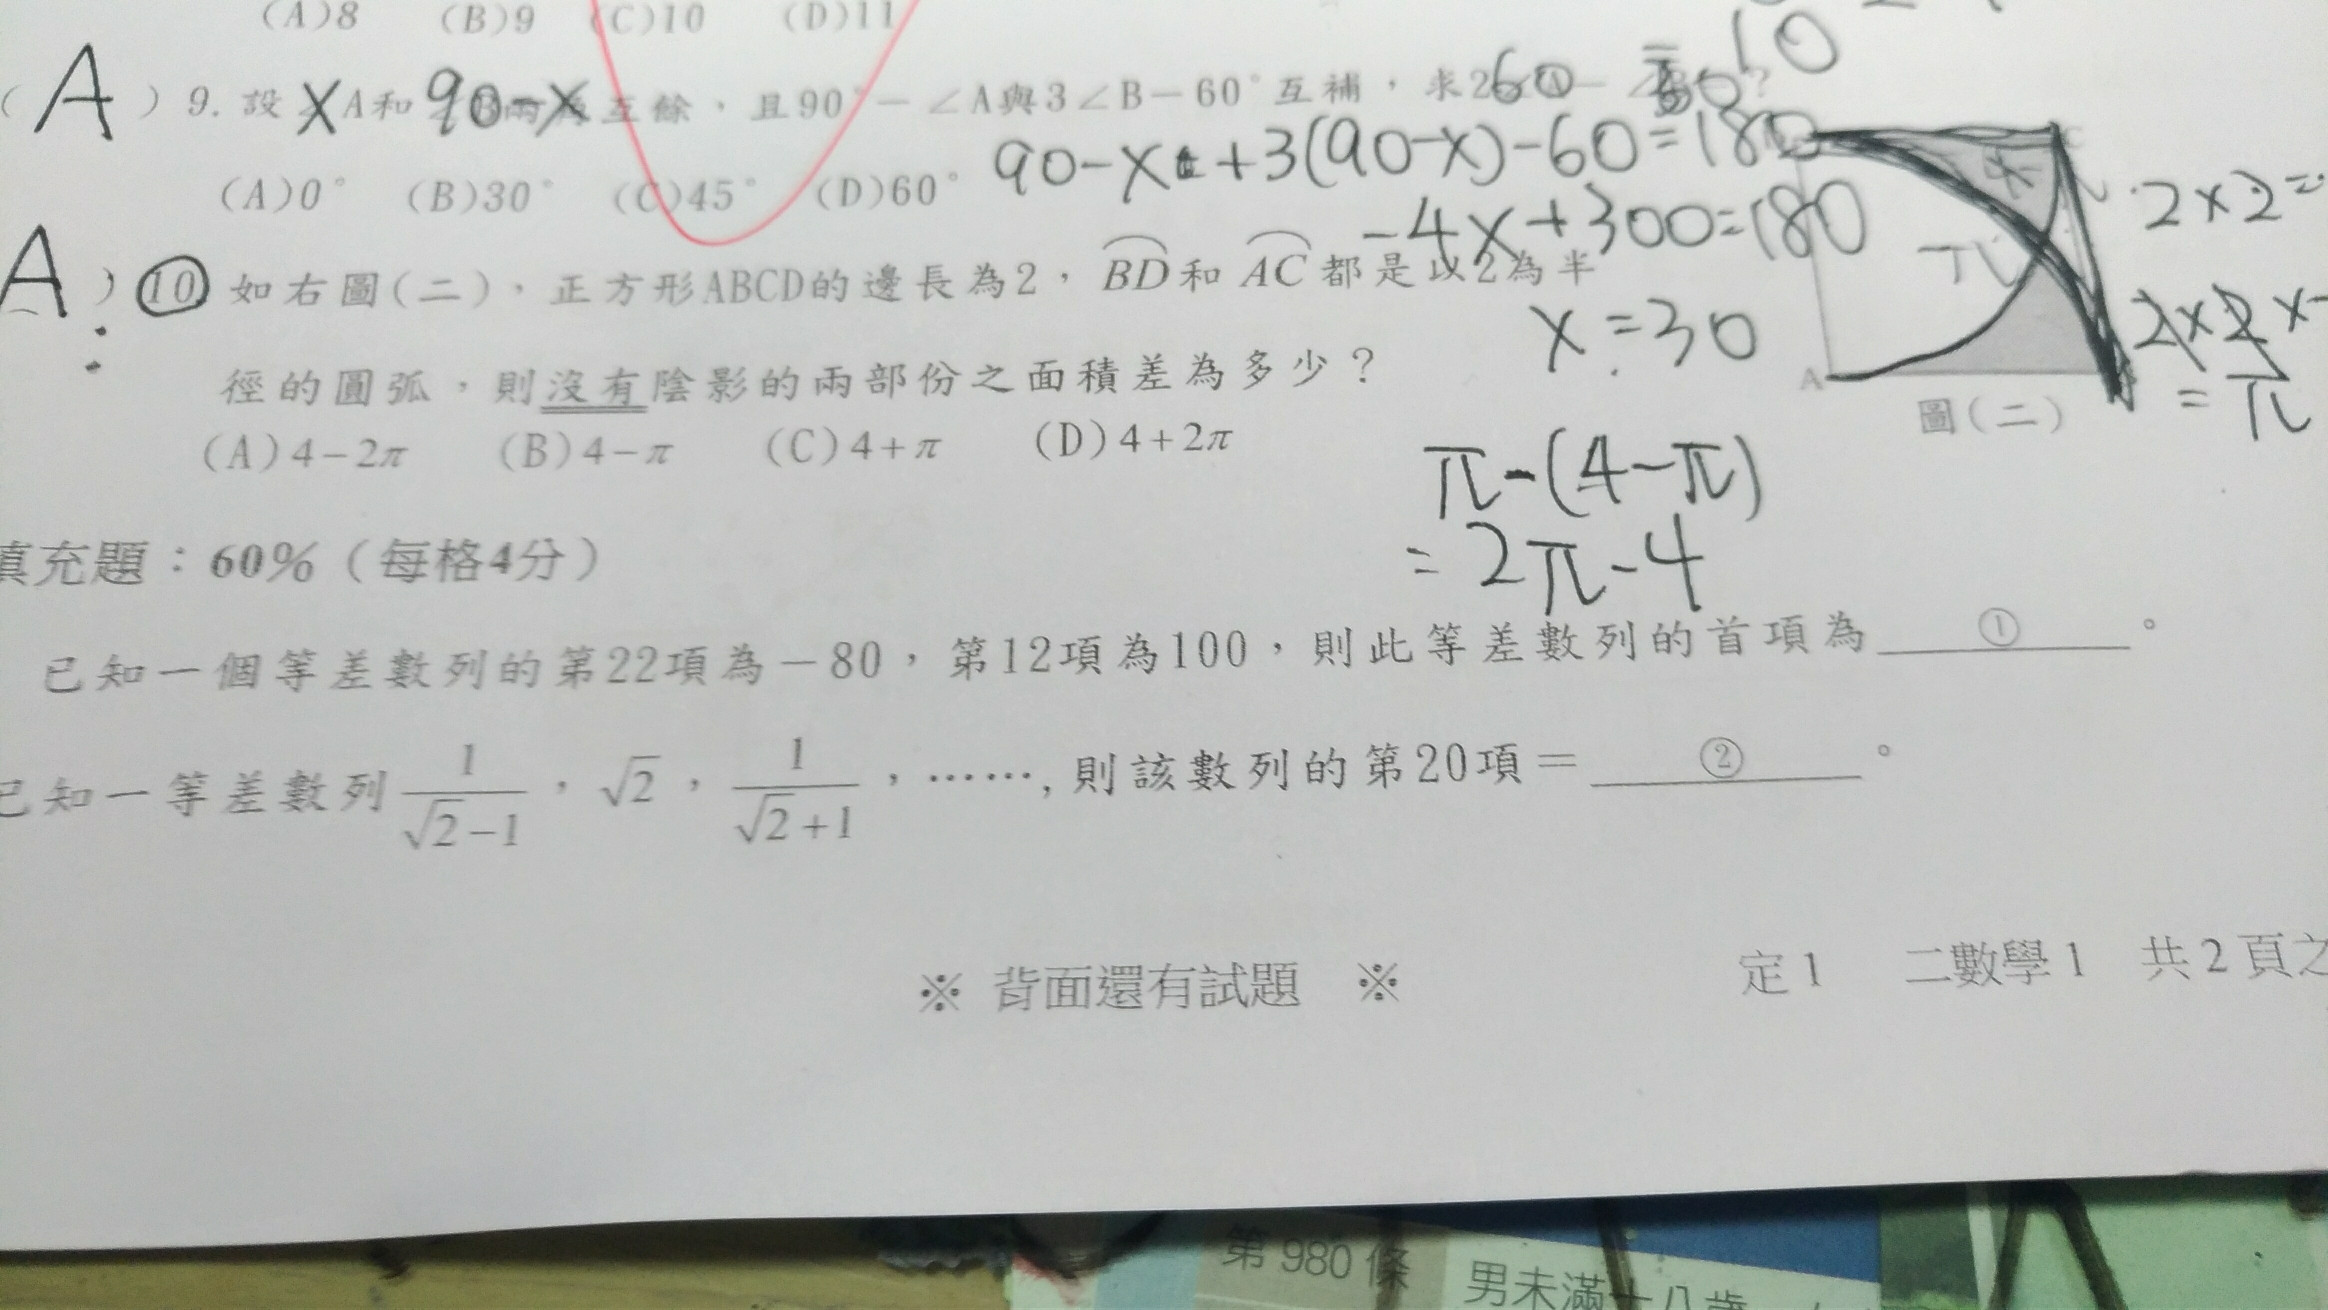 (A)8 (B)9 (C)10 (D)11
10
( A ) 9. 設 X A和 90-X 互餘，且90°－∠A與3∠B－60°互補，求2 60
90-X+3(90-X)-60=180
(A)0° (B)30° (C)45° (D)60°
-4X+300=180
2x2=
A ) 10 如右圖(二)，正方形ABCD的邊長為2，BD和AC都是以2為半
X=30
π
2x2x
=π
徑的圓弧，則沒有陰影的兩部份之面積差為多少？
A
圖(二)
(A)4－2π (B)4－π (C)4＋π (D)4＋2π
π-(4-π)
=2π-4
填充題：60%（每格4分）
已知一個等差數列的第22項為－80，第12項為100，則此等差數列的首項為 ① 。
已知一等差數列 1/(√2－1)，√2，1/(√2＋1)，……,則該數列的第20項＝ ② 。
※ 背面還有試題 ※
定1 二數學1 共2頁之
第 980 條
男未滿十八歲